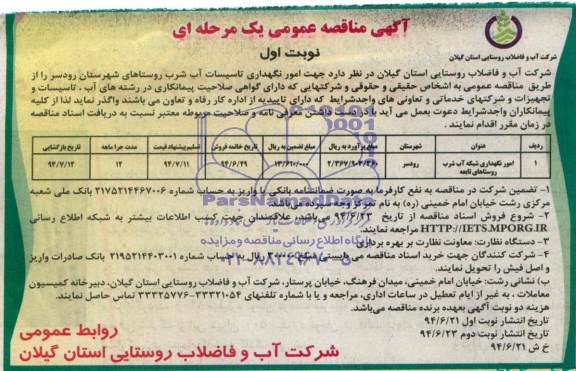 آگهی مناقصه عمومی یک مرحله ای
نوبت اول
شرکت آب و فاضلاب روستایی استان گیلان
شرکت آب و فاضلاب روستایی استان گیلان در نظر دارد جهت امور نگهداری تاسیسات آب شرب روستاهای شهرستان رودسر را از
طریق مناقصه عمومی به اشخاص حقیقی و حقوقی و شرکتهایی که دارای گواهی صلاحیت پیمانکاری در رشته های آب ، تاسیسات و
تجهیزات و شرکتهای خدماتی و تعاونی های واجدشرایط که دارای تاییدیه از اداره کار رفاه و تعاون می باشند واگذار نماید لذا از کلیه
پیمانکاران واجدشرایط دعوت بعمل می آید با در دست داشتن معرفی نامه و صلاحیت مربوطه معتبر نسبت به دریافت اسناد مناقصه
در زمان مقرر اقدام نمایند .
ردیف عنوان شهرستان مبلغ برآورد به ریال مبلغ تضمین به ریال تاریخ خاتمه فروش تسلیم پیشنهاد قیمت مدت اجرا ماهه تاریخ بازگشایی
۱ امور نگهداری شبکه آب شرب روستاهای تابعه رودسر ۹۴/۶/۲۹ ۹۴/۷/۱۱ ۱۲ ۹۴/۷/۱۲
۱- تضمین شرکت در مناقصه به نفع کارفرما به صورت ضمانتنامه بانکی یا واریز به حساب شماره ۲۱۷۵۲۱۴۴۶۷۰۰۶ بانک ملی شعبه
مرکزی رشت خیابان امام خمینی (ره) به نام
۲- شروع فروش اسناد مناقصه از تاریخ ۹۴/۶/۲۳ می‌باشد، علاقمندان جهت کسب اطلاعات بیشتر به شبکه اطلاع رسانی
HTTP://IETS.MPORG.IR مراجعه نمایند.
۳- دستگاه نظارت: معاونت نظارت بر بهره برداری
۴- شرکت کنندگان جهت خرید اسناد مناقصه می بایستی مبلغ ریال به حساب شماره ۲۱۹۵۲۱۴۴۰۳۰۰۱ بانک صادرات واریز
و اصل فیش را تحویل نمایند.
ب) نشانی رشت: خیابان امام خمینی، میدان فرهنگ، خیابان پرستار، شرکت آب و فاضلاب روستایی استان گیلان، دبیرخانه کمیسیون
معاملات ، به غیر از ایام تعطیل در ساعات اداری، مراجعه و یا با شماره تلفنهای ۳۳۳۲۱۰۵۴-۳۳۳۲۵۷۷۶ تماس حاصل نمایند.
هزینه دو نوبت آگهی بعهده برنده مناقصه می‌باشد.
تاریخ انتشار نوبت اول ۹۴/۶/۲۱
تاریخ انتشار نوبت دوم ۹۴/۶/۲۳
خ ش ۹۴/۶/۲۱
روابط عمومی
شرکت آب و فاضلاب روستایی استان گیلان
ParsNamadData
پایگاه اطلاع رسانی مناقصه و مزایده
۰۲۱-۸۸۳۴۹۶۷۰-۵